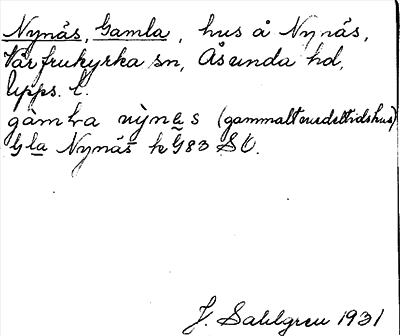 Nynäs, Gamla, hus å Nynäs,
Vårfrukyrka sn, Åsunda hd,
Upps. l.
gàmla nỳnes (gammalt medeltidshus)
Gla Nynäs h G83 SO.
J. Sahlgren 1931